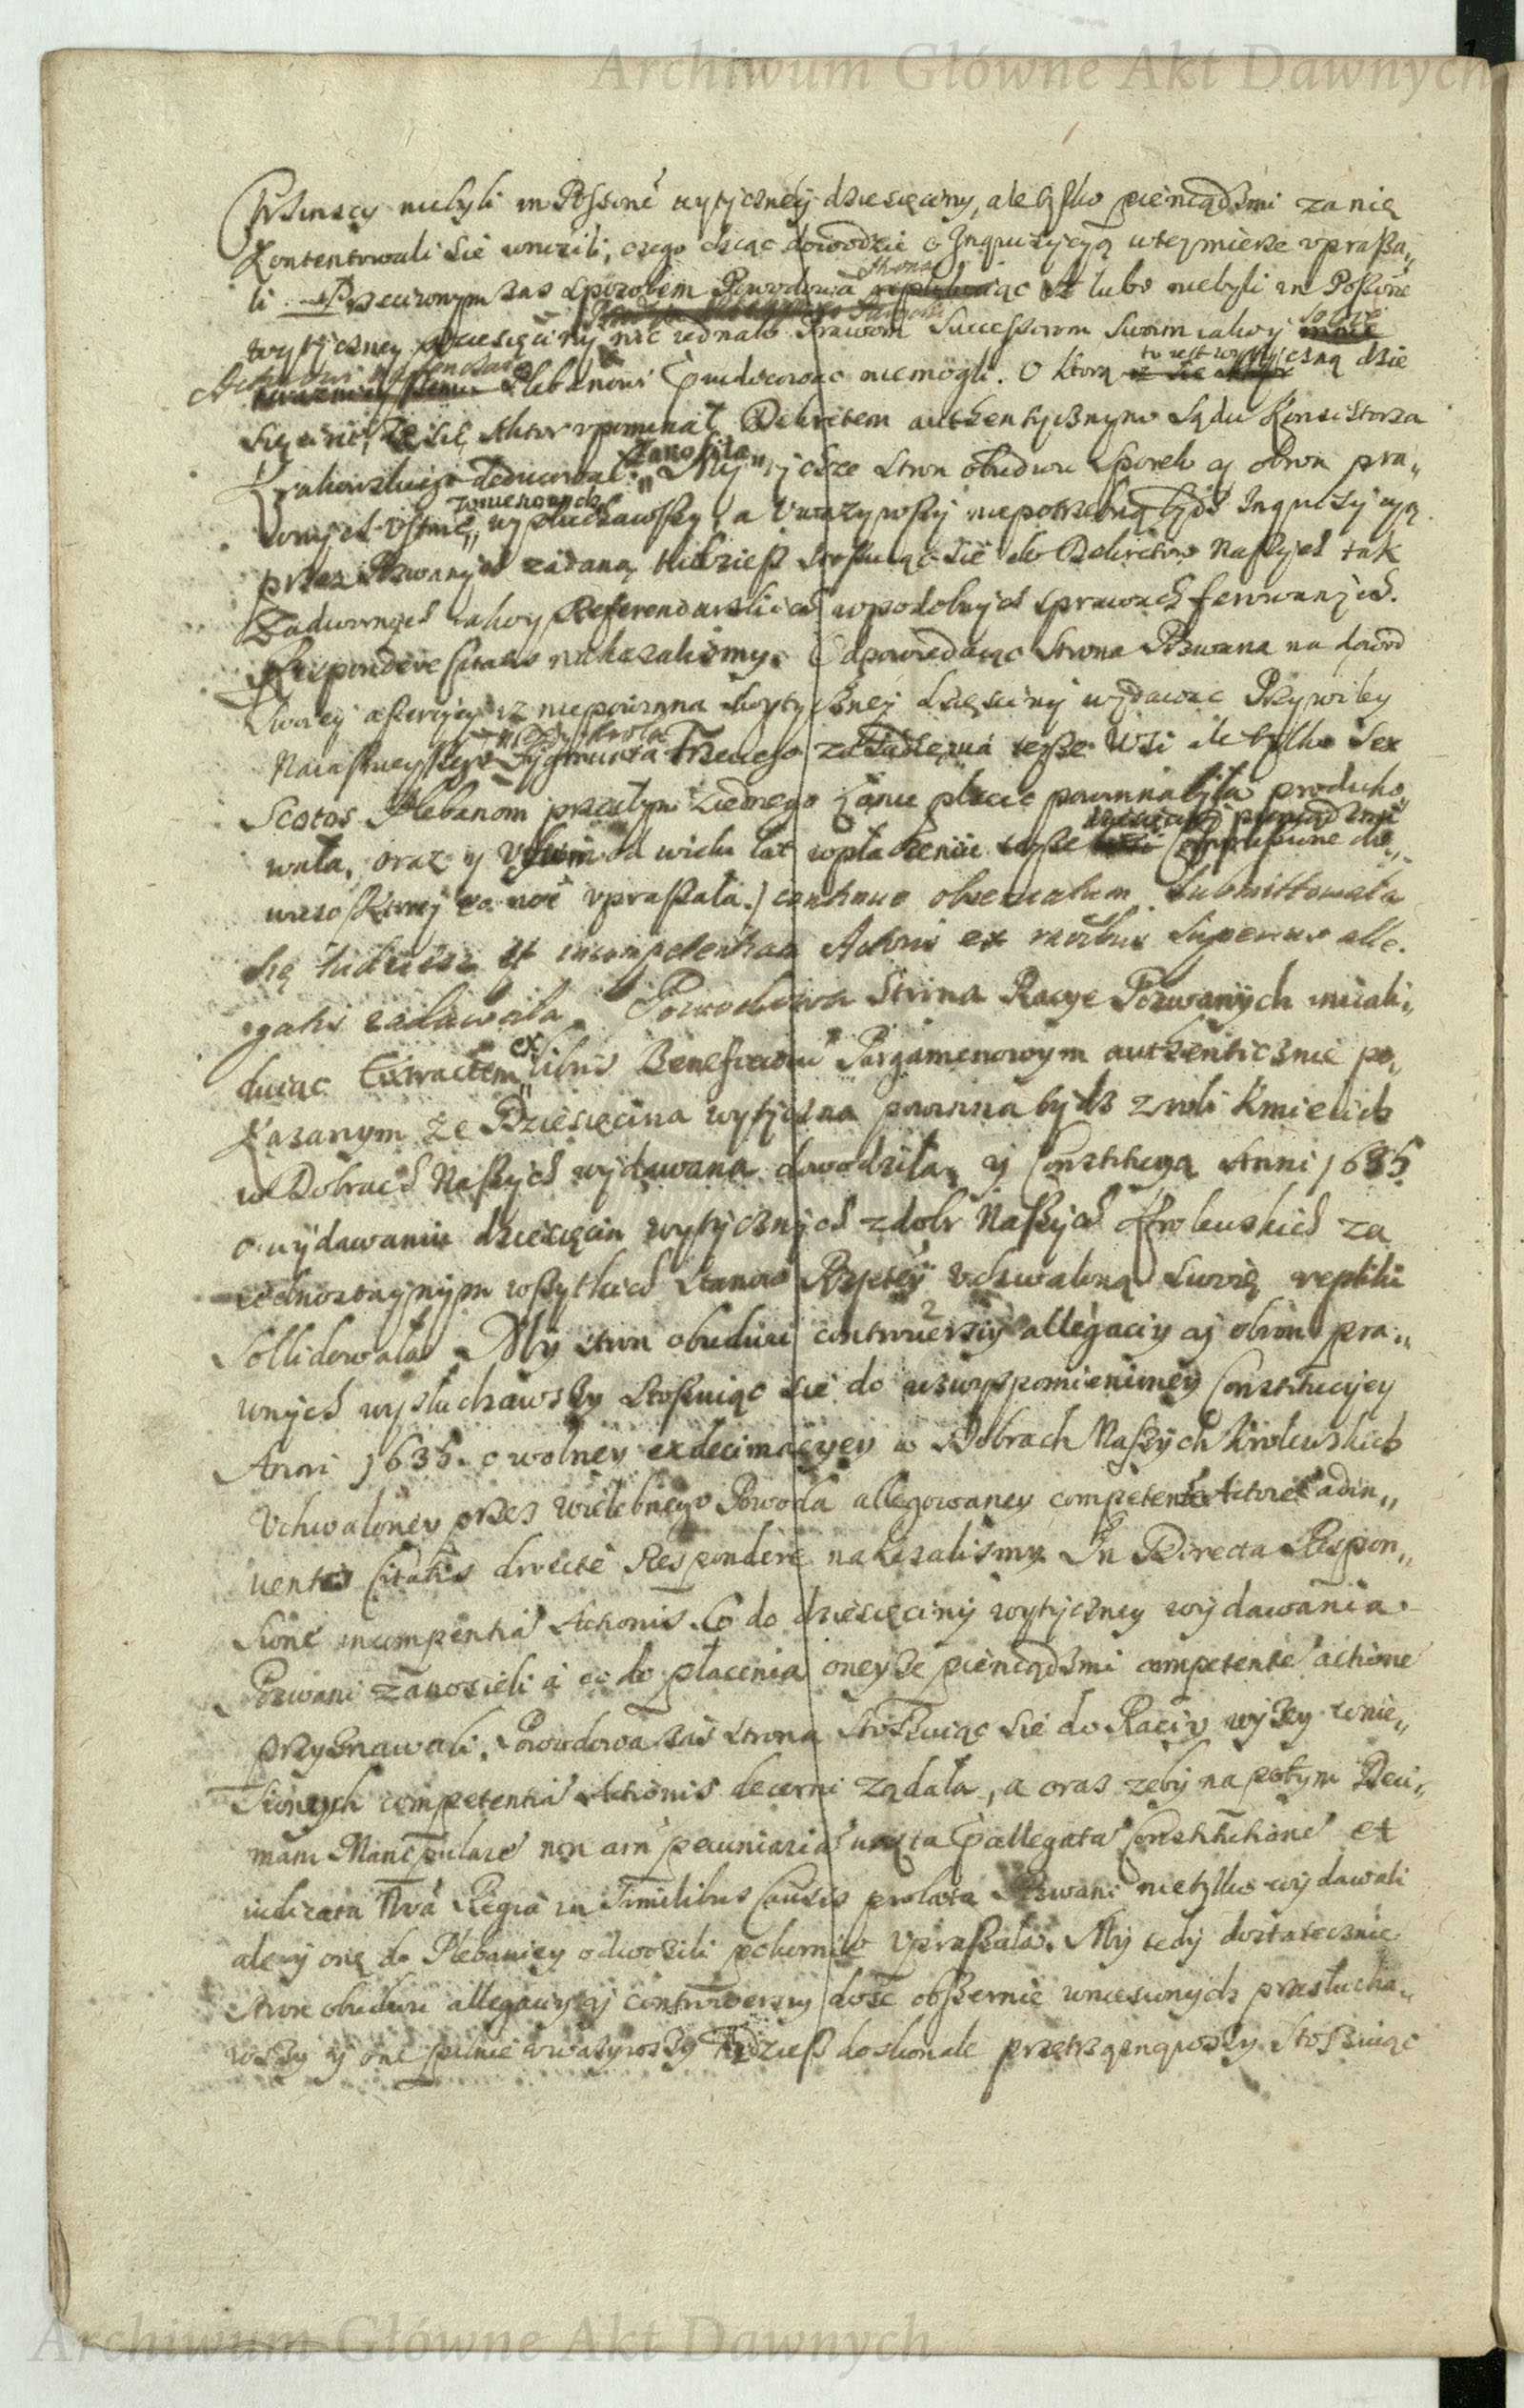 Archiwum Główne Akt Dawnych
niebyli in Possone wytyczney dziesięciny, ale tylko pieniądzmi za nię
Kontentowali sie wnosili, czego chcąc dowodzic o Inquizycyą w tey mierze vprasza„
li Przeciwnym zas sposobem Powodowa strona iż lubo niebyli in Possone
wytyczney dziesięciny nic iednako Prawom Successorom Swoim iakoy sobie
Plebanowi niemogli. O ktorą to iest wytyczną dzie
sięcinę, ze się Aktor vpominał Dekretem authentycznym Sądu Konsistorza
Krakowskiego Zanosiła„ My tychze stron obudwu Sporek y obron pra„
wnych wysłuchawszy, a Vwazywszy niepotrzebną bydz Inquizycyą
przez Pozwanych ządaną tudziesz stosuiąc sie do Dekretow Naszych tak
Zadwornych iakoy Referendarskich w podobnych sprawach ferowanych.
Respondere nakazalismy. Odpowiedaiąc Strona Pozwana na dowod
Swoiey iz niepowinna wytyczney dziesęciny wydawac Przywiley
Naiasnieyszego Zygmunta Trzeciego teysze Wsi ile tylko Sex
Scotos Plebanom przeszłym z iednego Łanu płacic powinna była produko„
wała, oraz y od wielu lat w płaceniu teysze pieniądzmi
vpraszała.) continuo obseruatum submittowała
się tudziesz et incompetentiam Actoris ex superius alle„
gatis zadawała. Powodowa Strona Racye Pozwanych inuali„
duiąc Extractem ex libris Beneficiorum Pargamenowym authentycznie po„
kazanym że Dziesięcina wytyczna powinna bydz z roli Kmiecich
w Dobrach Naszych wydawana dowodziła, y Constitucyą Anni 1635
o wydawaniu dziesięcin wytycznych z dobr Naszych Krolewskich za
iednostaynym wszytkich Stanow Rzptey vchwaloną Swoię repliki
Sollidowała. My stron obudwu controuersiy allegaciy y obron pra„
wnych wysłuchawszy Stosuiąc sie do wzwyszpomienioney Constitucyey
Anni 1635. o wolney exdecimacyey w Dobrach Naszych Krolewskich
Vchwaloney przez wielebnego Powoda allegowaney competente Actore adin„
uento Citatis directe Respondere nakazalismy In Directa Respon„
sione incompentia Actionis Co do dziesięciny wytyczney wydawania
Pozwani zanosieli a co do płacenia oneyze pieniądzmi competente actione
przyznawali. Powodowa zas strona Stosuiąc sie do Raciy wyzey wnie„
sionych competentia Actionis decerni ządała, a oraz zeby na potym Deci„
mam Manipularem non pecuniaria iuxta Constitutione et
iudicata Regia in Similibus Causis prolata Pozwani nietylko wydawali
ale y onę do Plebaniey odwozili pokornie vpraszała. My tedy dostatecznie
stron obudwu allegacyi y controuersiy dość obszernie wniesionych przesłucha„
wszy y one pilnie vwazywszy Tudziesz doskonale przetrząsnąwszy Stosuiąc
Archiwum Główne Akt Dawnych